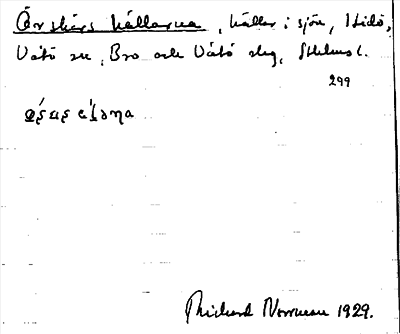 Örskärs hällarna, hällar i sjön, Hidö,
Vätö sn, Bro och Vätö slg, Sthlms l.
299
Richard Norrman 1929.